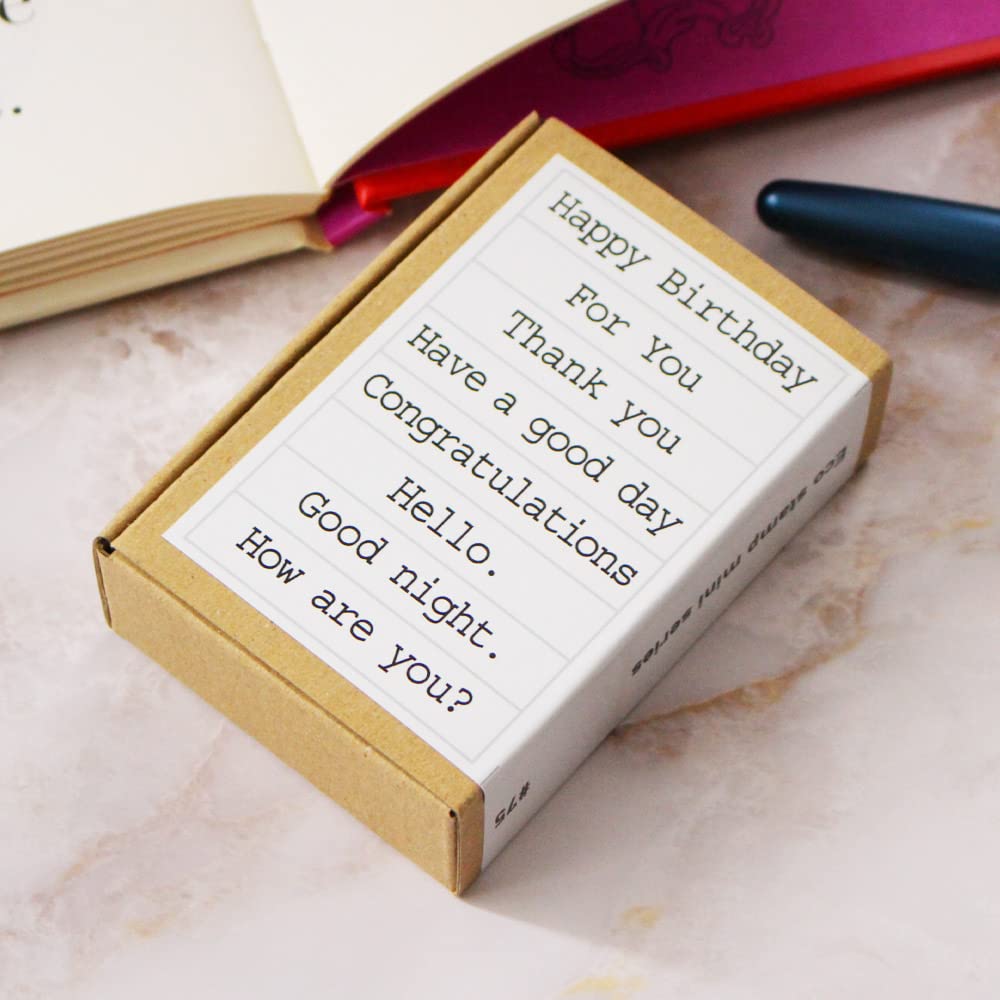 Happy Birthday
For You
Thank you
Have a good day
Congratulations
Hello.
Good night.
How are you?
Eco stamp mini series
#75